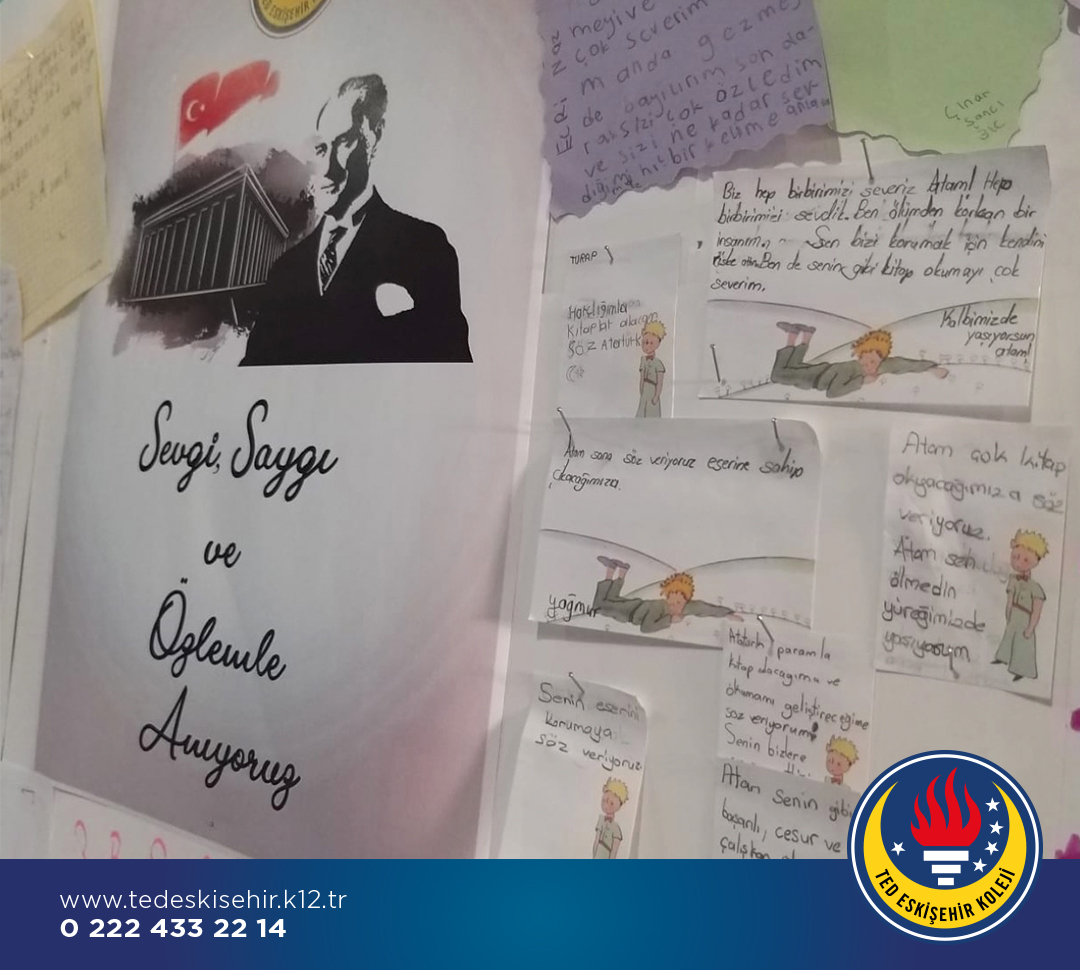 TED ESKİŞEHİR K12
Sevgi, Saygı
ve
Özlemle
Anıyoruz
meyive
çok severim
manda gezmey
de bayılırım son da-
sizi çok özledim
ve sizi ne kadar sev
diğimi hiç bir kelime anlata
Çınar
Biz hep birbirimizi severiz Atam! Hep
birbirimizi sevdik. Ben ölümden korkan bir
insanım. Sen bizi korumak için kendini
riske attın. Ben de senin gibi kitap okumayı çok
severim.
Kalbimizde
yaşıyorsun
atam!
TURAP
kitaplar alacağım
SÖZ Atertürk
Atam sana söz veriyoruz eserine sahip
çıkacağımıza.
yağmur
Atam çok kitap
okuyacağımıza söz
veriyoruz.
Atam sen
ölmedin
yüreğimizde
yaşıyorsun
Senin eserini
korumaya
söz veriyoruz
Atatürk paramla
kitap alacağıma ve
okumamı geliştireceğime
söz veriyorum!
Senin bizlere
Atam Senin gibi
başarılı, cesur ve
çalışkan
www.tedeskisehir.k12.tr
0 222 433 22 14
TED ESKİŞEHİR KOLEJİ